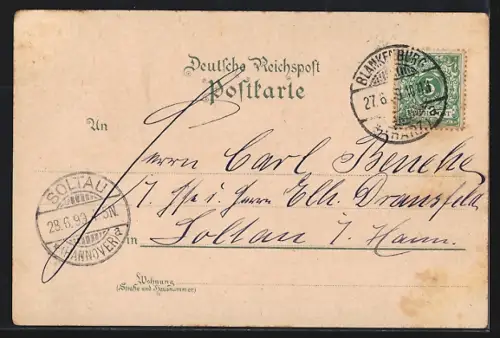 Deutsche Reichspost
Postkarte
BLANKENBURG
27.6.
* (HARZ) a
5
An
Herrn Carl Beneke
i. Herrn Elh. Dransfeld
in Soltau i. Hann.
SOLTAU
28.6.99. N.
* (HANNOVER) a
Wohnung
(Straße und Hausnummer)